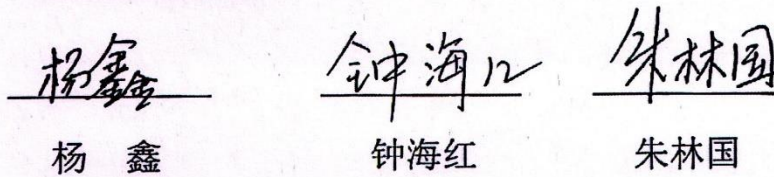 杨鑫 钟海红 朱林国
杨 鑫 钟海红 朱林国